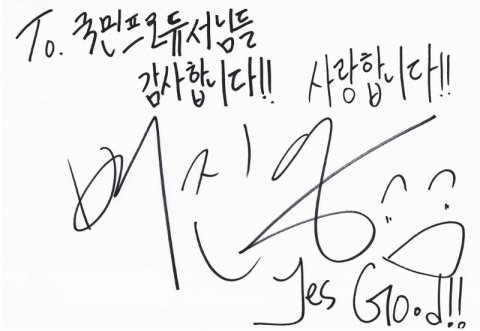 To. 국민프로듀서님들
감사합니다!! 사랑합니다!!
Yes Good!!